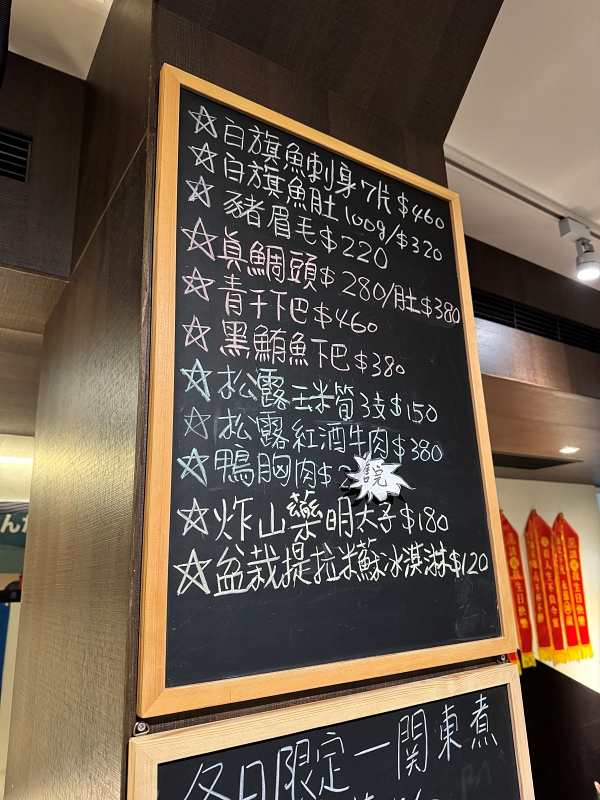 ☆白旗魚刺身 7片$460
☆白旗魚肚 100g/$320
☆豬眉毛$220
☆真鯛頭$280/肚$380
☆青干下巴$460
☆黑鮪魚下巴$380
☆松露玉米筍3支$150
☆松露紅酒牛肉$380
☆鴨胸肉$ 完
☆炸山藥明太子$180
☆盆栽提拉米蘇冰淇淋$120
冬日限定一關東煮